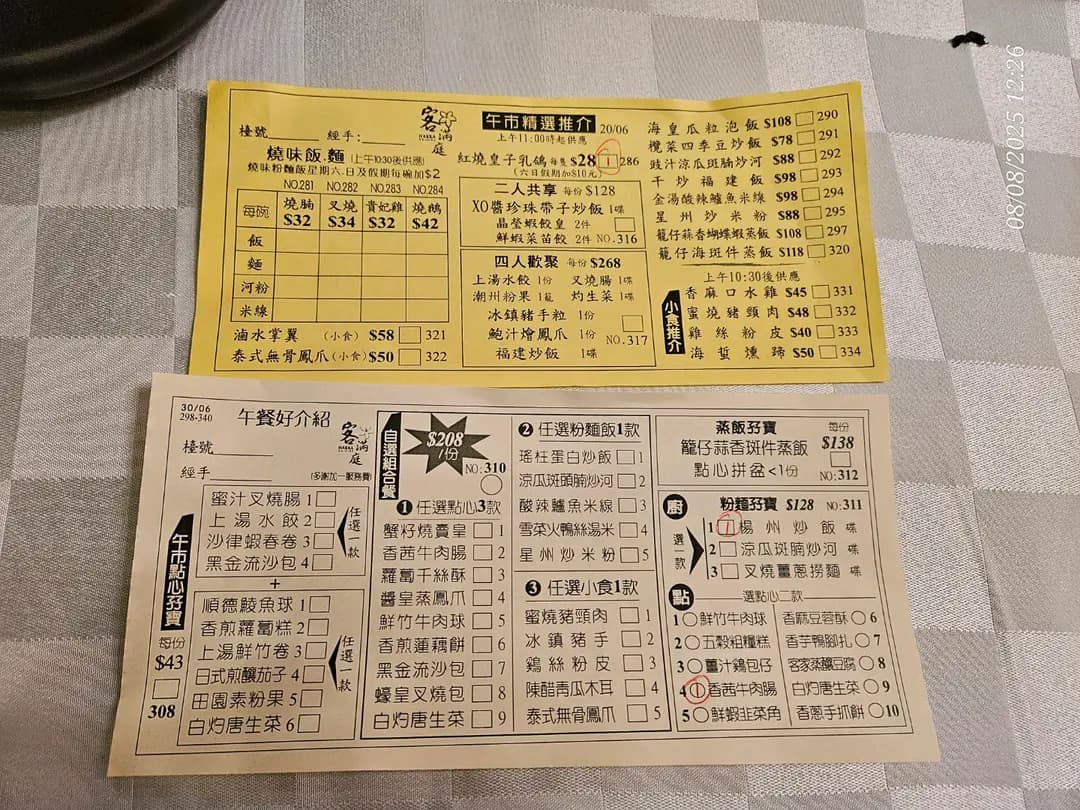 08/08/2025 12:26
檯號 經手:
客滿庭
HAKKA
燒味飯.麵(上午10:30後供應)
燒味粉麵飯星期六.日及假期每碗加$2
NO.281 NO.282 NO.283 NO.284
每碗 燒腩 叉燒 貴妃雞 燒鵝
$32 $34 $32 $42
飯
麵
河粉
米線
滷水掌翼 (小食) $58 321
泰式無骨鳳爪(小食)$50 322
午市精選推介 20/06
上午11:00時起供應
紅燒皇子乳鴿 每隻 $28 1 286
(六日假期加$10元)
二人共享 每份 $128
XO醬珍珠帶子炒飯 1碟
晶瑩蝦餃皇 2件
鮮蝦菜苗餃 2件 NO.316
四人歡聚 每份 $268
上湯水餃 1份 叉燒腸 1碟
潮州粉果 1籠 灼生菜 1碟
冰鎮豬手粒 1份
鮑汁燴鳳爪 1份
福建炒飯 1碟 NO.317
海皇瓜粒泡飯 $108 290
欖菜四季豆炒飯 $78 291
豉汁涼瓜斑腩炒河 $88 292
干炒福建飯 $98 293
金湯酸辣鱸魚米線 $98 294
星州炒米粉 $88 295
籠仔蒜香蝴蝶蝦蒸飯 $108 297
籠仔海斑件蒸飯 $118 320
上午10:30後供應
小食推介
香麻口水雞 $45 331
蜜燒豬頸肉 $48 332
雞絲粉皮 $40 333
海蜇燻蹄 $50 334
30/06
298-340
午餐好介紹
客滿庭
HAKKA
檯號
經手
(多謝加一服務費)
午市點心孖寶
每份
$43
308
蜜汁叉燒腸 1
上湯水餃 2
沙律蝦春卷 3
黑金流沙包 4
任選一款
+
順德鯪魚球 1
香煎蘿蔔糕 2
上湯鮮竹卷 3
日式煎釀茄子 4
田園素粉果 5
白灼唐生菜 6
任選一款
自選組合餐
$208
/份
NO:310
❶ 任選點心3款
蟹籽燒賣皇 1
香茜牛肉腸 2
蘿蔔千絲酥 3
醬皇蒸鳳爪 4
鮮竹牛肉球 5
香煎蓮藕餅 6
黑金流沙包 7
蠔皇叉燒包 8
白灼唐生菜 9
❷ 任選粉麵飯1款
瑤柱蛋白炒飯 1
涼瓜斑頭腩炒河 2
酸辣鱸魚米線 3
雪菜火鴨絲湯米 4
星州炒米粉 5
❸ 任選小食1款
蜜燒豬頸肉 1
冰鎮豬手 2
鷄絲粉皮 3
陳醋青瓜木耳 4
泰式無骨鳳爪 5
蒸飯孖寶 每份
籠仔蒜香斑件蒸飯 $138
點心拼盆<1份 NO:312
廚 粉麵孖寶 $128 NO:311
選一款
1 1 楊州炒飯 碟
2 涼瓜斑腩炒河 碟
3 叉燒薑蔥撈麵 碟
點 選點心二款
1 鮮竹牛肉球 香麻豆蓉酥 6
2 五穀粗糧糕 香芋鴨腳扎 7
3 薑汁鷄包仔 客家蒸釀豆腐 8
4 1 香茜牛肉腸 白灼唐生菜 9
5 鮮蝦韭菜角 香蔥手抓餅 10